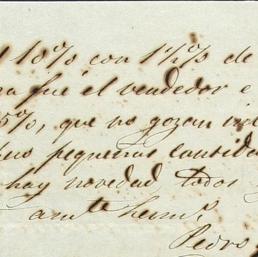 l 18% con 1½% de
na fué el vendedor e
5%, que no gozan int
pequeñas cantida
hay novedad, todos
amte herm.º
Pedro